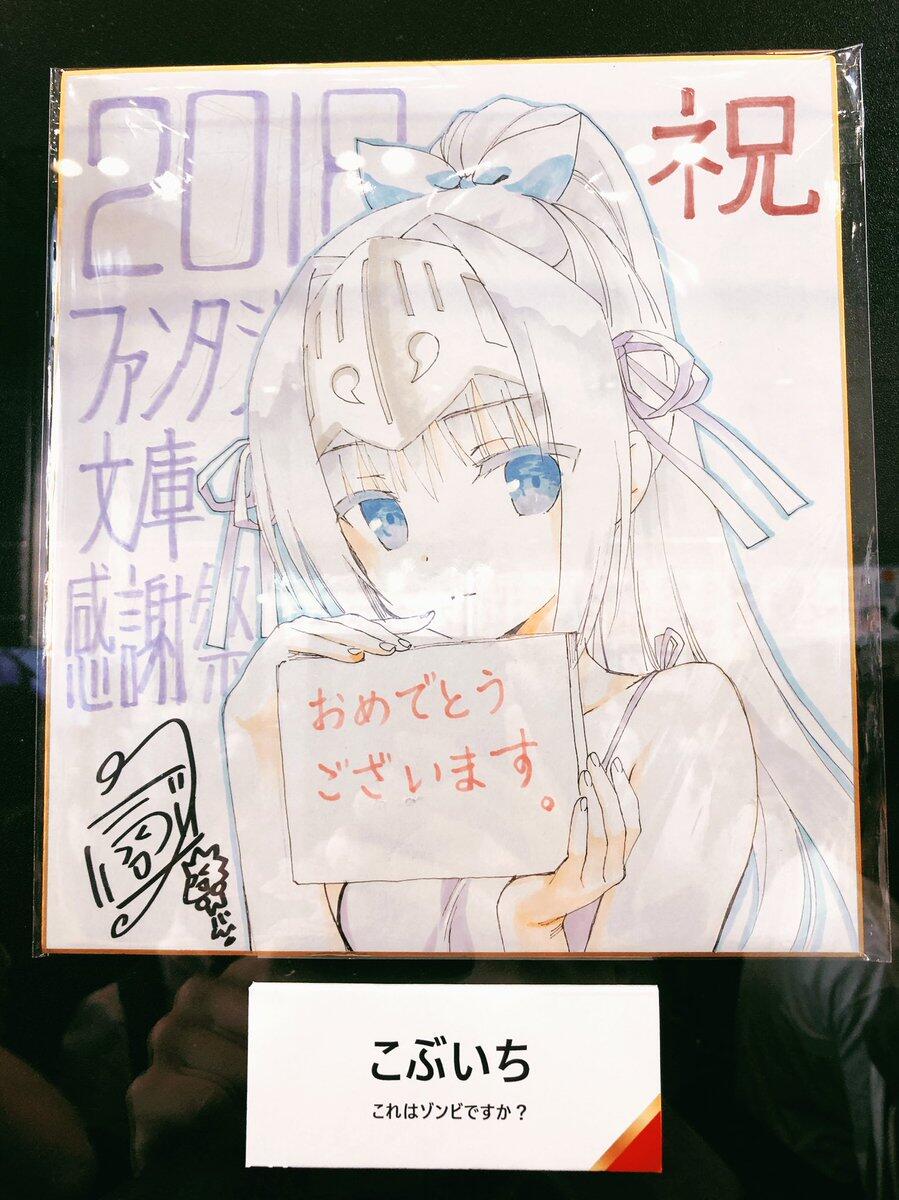 祝
2018
ファンタジ
文庫
感謝祭
おめでとう
ございます。
こぶいち
これはゾンビですか？